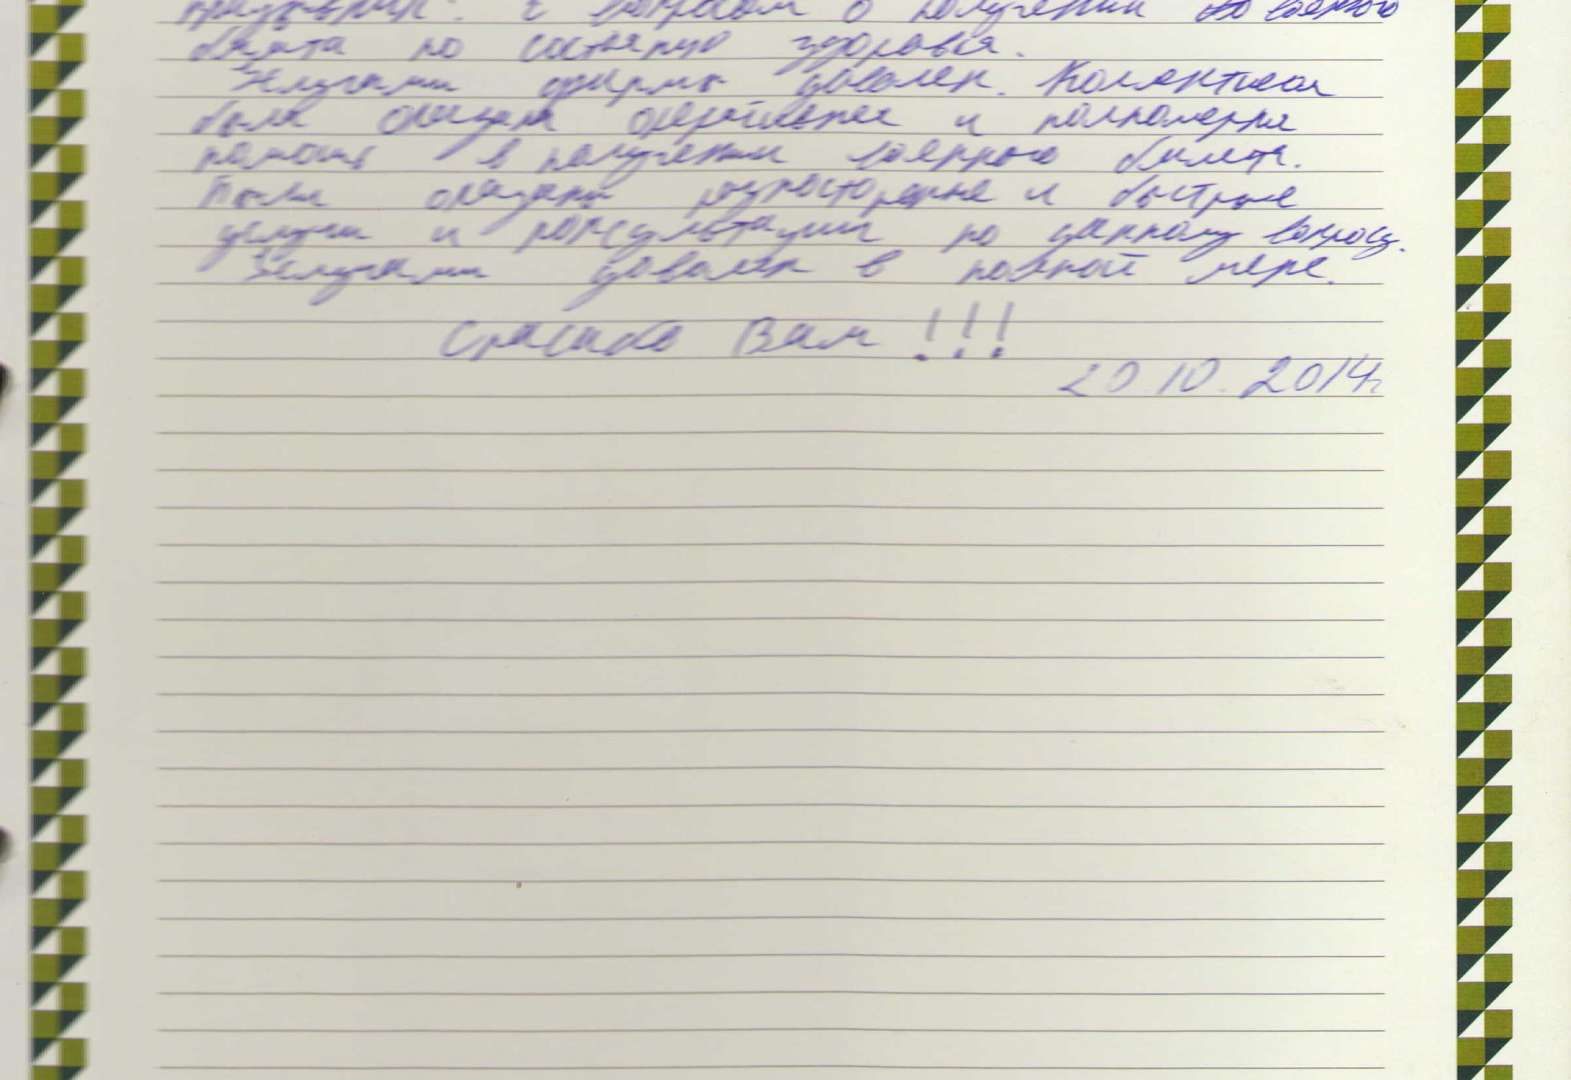 призывник". С вопросом о получении военного
билета по состоянию здоровья.
Услугами фирмы доволен. Коллективом
была оказана оперативная и полномерная
помощь в получении военного билета.
Были оказаны разносторонние и быстрые
услуги и консультации по данному вопросу.
Услугами доволен в полной мере.
Спасибо Вам!!!
20.10.2014г